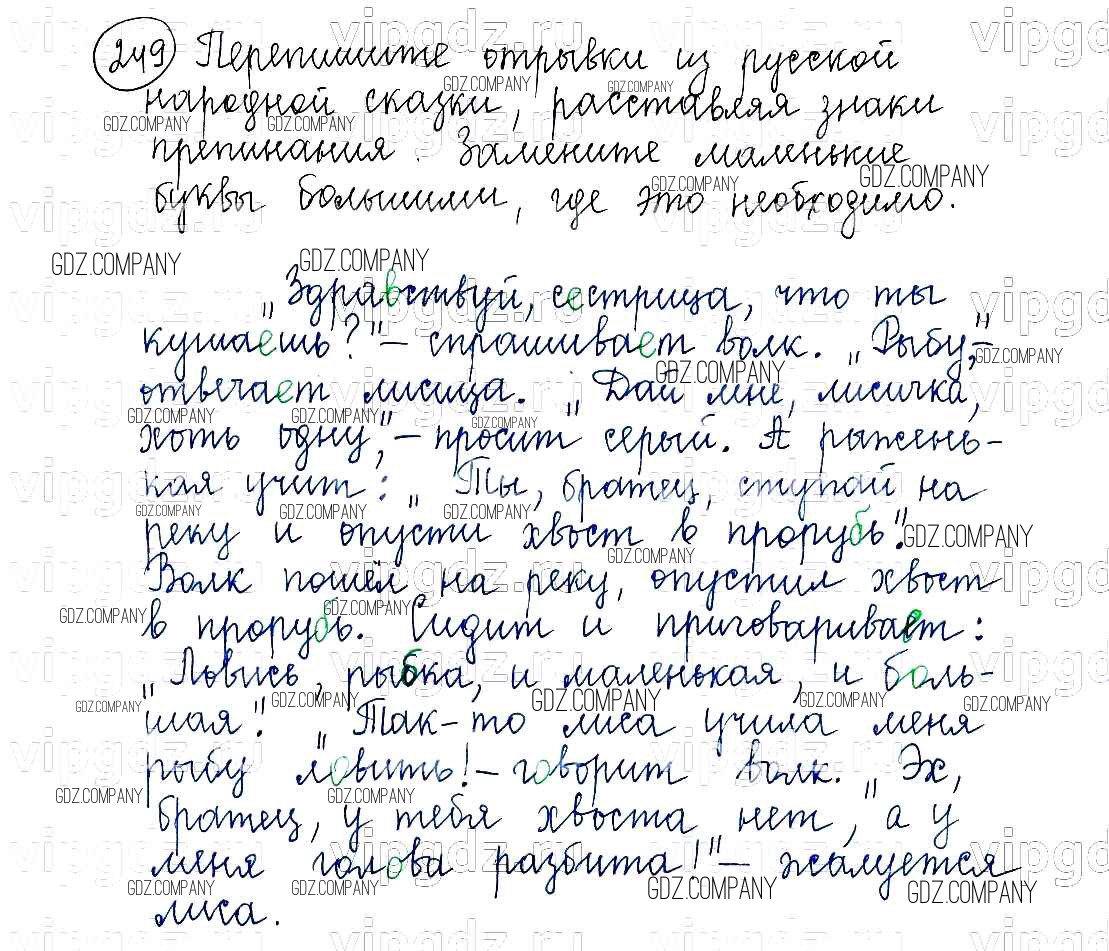 249 Перепишите отрывки из русской
народной сказки, расставляя знаки
препинания. Замените маленькие
буквы большими, где это необходимо.
„Здравствуй, сестрица, что ты
кушаешь?" – спрашивает волк. „Рыбу," –
отвечает лисица. „Дай мне, лисичка,
хоть одну," – просит серый. А рыжень-
кая учит: „Ты, братец, ступай на
реку и опусти хвост в прорубь".
Волк пошёл на реку, опустил хвост
в прорубь. Сидит и приговаривает:
„Ловись, рыбка, и маленькая, и боль-
шая". „Так-то лиса учила меня
рыбу ловить! – говорит волк. „Эх,
братец, у тебя хвоста нет, а у
меня голова разбита!" – жалуется
лиса.
vipgdz.ru
GDZ.COMPANY